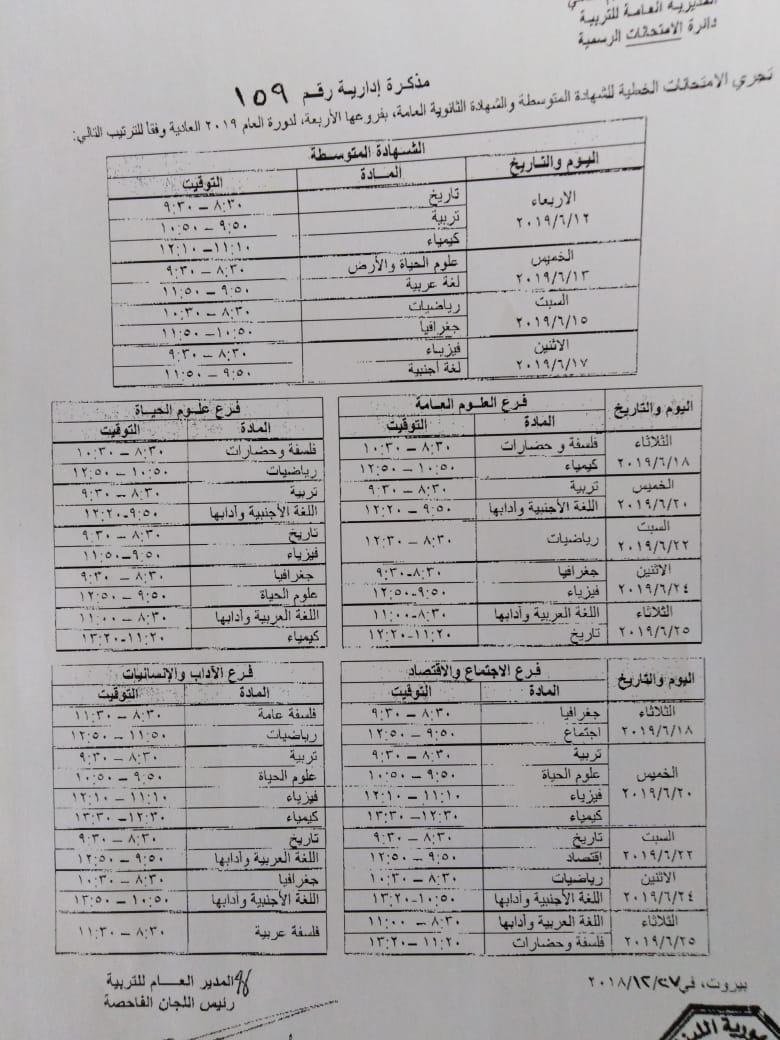 المديرية العامة للتربية
دائرة الامتحانات الرسمية
مذكرة إدارية رقم ١٥٩
تجري الامتحانات الخطية للشهادة المتوسطة والشهادة الثانوية العامة، بفروعها الأربعة، لدورة العام ٢٠١٩ العادية وفقا للترتيب التالي:
اليوم والتاريخ الشهادة المتوسطة
المادة التوقيت
الاربعاء ٢٠١٩/٦/١٢
تاريخ ٨:٣٠ – ٩:٣٠
تربية ٩:٥٠ – ١٠:٥٠
كيمياء ١١:١٠ – ١٢:١٠
الخميس ٢٠١٩/٦/١٣
علوم الحياة والأرض ٨:٣٠ – ٩:٣٠
لغة عربية ٩:٥٠ – ١١:٥٠
السبت ٢٠١٩/٦/١٥
رياضيات ٨:٣٠ – ١٠:٣٠
جغرافيا ١٠:٥٠ – ١١:٥٠
الاثنين ٢٠١٩/٦/١٧
فيزياء ٨:٣٠ – ٩:٣٠
لغة أجنبية ٩:٥٠ – ١١:٥٠
اليوم والتاريخ فرع العلوم العامة فرع علوم الحياة
المادة التوقيت المادة التوقيت
الثلاثاء ٢٠١٩/٦/١٨
فلسفة و حضارات ٨:٣٠ – ١٠:٣٠ فلسفة وحضارات ٨:٣٠ – ١٠:٣٠
كيمياء ١٠:٥٠ – ١٢:٥٠ رياضيات ١٠:٥٠ – ١٢:٥٠
الخميس ٢٠١٩/٦/٢٠
تربية ٨:٣٠ – ٩:٣٠ تربية ٨:٣٠ – ٩:٣٠
اللغة الأجنبية وأدابها ٩:٥٠ – ١٢:٢٠ اللغة الأجنبية وأدابها ٩:٥٠-١٢:٢٠
السبت ٢٠١٩/٦/٢٢
رياضيات ٨:٣٠ – ١٢:٣٠ تاريخ ٨:٣٠ – ٩:٣٠
فيزياء ٩:٥٠–١١:٥٠
الاثنين ٢٠١٩/٦/٢٤
جغرافيا ٨:٣٠-٩:٣٠ جغرافيا ٨:٣٠ – ٩:٣٠
فيزياء ٩:٥٠-١٢:٥٠ علوم الحياة ٩:٥٠ – ١٢:٥٠
الثلاثاء ٢٠١٩/٦/٢٥
اللغة العربية وأدابها ٨:٣٠-١١:٠٠ اللغة العربية وأدابها ٨:٣٠ – ١١:٠٠
تاريخ ١١:٢٠-١٢:٢٠ كيمياء ١١:٢٠-١٣:٢٠
اليوم والتاريخ فرع الاجتماع والاقتصاد فرع الآداب والإنسانيات
المادة التوقيت المادة التوقيت
الثلاثاء ٢٠١٩/٦/١٨
جغرافيا ٨:٣٠ – ٩:٣٠ فلسفة عامة ٨:٣٠ – ١١:٣٠
اجتماع ٩:٥٠ – ١٢:٥٠ رياضيات ١١:٥٠ – ١٢:٥٠
الخميس ٢٠١٩/٦/٢٠
تربية ٨:٣٠ – ٩:٣٠ تربية ٨:٣٠ – ٩:٣٠
علوم الحياة ٩:٥٠ – ١٠:٥٠ علوم الحياة ٩:٥٠ – ١٠:٥٠
فيزياء ١١:١٠ – ١٢:١٠ فيزياء ١١:١٠ – ١٢:١٠
كيمياء ١٢:٣٠ – ١٣:٣٠ كيمياء ١٢:٣٠ – ١٣:٣٠
السبت ٢٠١٩/٦/٢٢
تاريخ ٨:٣٠ – ٩:٣٠ تاريخ ٨:٣٠ – ٩:٣٠
إقتصاد ٩:٥٠ – ١٢:٥٠ اللغة العربية وأدابها ٩:٥٠ – ١٢:٥٠
الاثنين ٢٠١٩/٦/٢٤
رياضيات ٨:٣٠ – ١٠:٣٠ جغرافيا ٨:٣٠ – ١٠:٣٠
اللغة الأجنبية وأدابها ١٠:٥٠-١٣:٢٠ اللغة الأجنبية وأدابها ١٠:٥٠ – ١٣:٥٠
الثلاثاء ٢٠١٩/٦/٢٥
اللغة العربية وأدابها ٨:٣٠ – ١١:٠٠ فلسفة عربية ٨:٣٠ – ١١:٣٠
فلسفة وحضارات ١١:٢٠ – ١٣:٢٠
بيروت، في ٢٠١٨/١٢/٢٧
المدير العام للتربية
رئيس اللجان الفاحصة